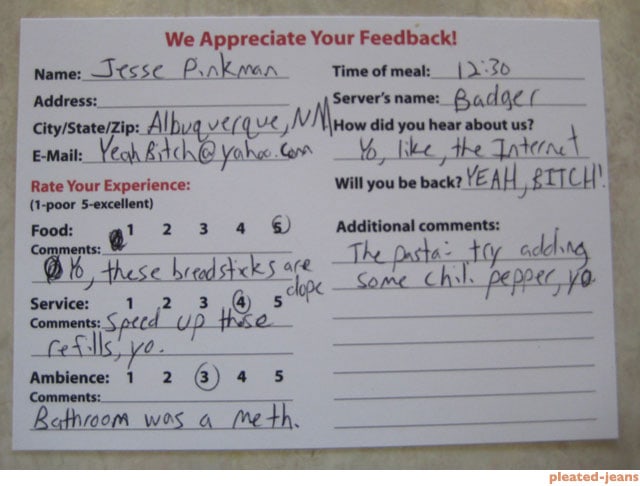 We Appreciate Your Feedback!
Name: Jesse Pinkman
Address:
City/State/Zip: Albuquerque, NM
E-Mail: YeahBitch@yahoo.com
Rate Your Experience:
(1-poor 5-excellent)
Food: 1 2 3 4 5
Comments:
Yo, these breadsticks are
dope
Service: 1 2 3 4 5
Comments: Speed up those
refills, yo.
Ambience: 1 2 3 4 5
Comments:
Bathroom was a meth.
Time of meal: 12:30
Server's name: Badger
How did you hear about us?
Yo, like, the Internet
Will you be back? YEAH, BITCH!
Additional comments:
The pasta: try adding
some chili pepper, yo
pleated-jeans